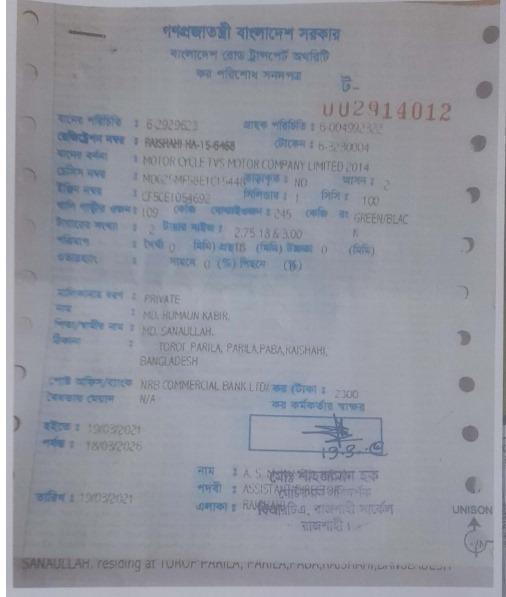 গণপ্রজাতন্ত্রী বাংলাদেশ সরকার
বাংলাদেশ রোড ট্রান্সপোর্ট অথরিটি
কর পরিশোধ সনদপত্র
ট-
002914012
যানের পরিচিতি : 6-2929623 গ্রাহক পরিচিতি : 6-004992322
রেজিস্ট্রেশন নম্বর : RAJSHAHI-HA-15-6468 টোকেন : 6-3230004
যানের বর্ণনা : MOTOR CYCLE TVS MOTOR COMPANY LIMITED 2014
চেসিস নম্বর : NO আসন : 2
ইঞ্জিন নম্বর : CF5CE1054692 সিলিন্ডার : 1 সিসি : 100
খালি গাড়ীর ওজন : 109 কেজি বোঝাইওজন : 245 কেজি রং GREEN/BLAC
K
টায়ারের সংখ্যা : 2 টায়ার সাইজ : 2.75 18 & 3.00
পরিমাপ : দৈর্ঘ্য 0 (মিমি) প্রস্থ 18 (মিমি) উচ্চতা 0 (মিমি)
ওভারহ্যাং : সামনে 0 (%) পিছনে (%)
মালিকানার ধরণ : PRIVATE
নাম : MD. HUMAUN KABIR,
পিতা/স্বামীর নাম : MD. SANAULLAH,
ঠিকানা : TOROF PARILA, PARILA,PABA,RAJSHAHI,
BANGLADESH
পোষ্ট অফিস/ব্যাংক NRB COMMERCIAL BANK LTD/ কর (টাকা : 2300
বৈধতার মেয়াদ N/A কর কর্মকর্তার স্বাক্ষর
হইতে : 19/03/2021
পর্যন্ত : 18/03/2026
নাম : A. S.
পদবী : ASSISTANT DIRECTOR
তারিখ : 19/03/2021 এলাকা :
বিআরটিএ, রাজশাহী সার্কেল
রাজশাহী।
UNISON
SANAULLAH. residing at TOROF PARILA, PARILA,PABA,RAJSHAHI,BANGLADESH